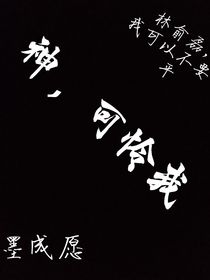 林俞磊
我可以不要
平
神，可怜我
墨成愿